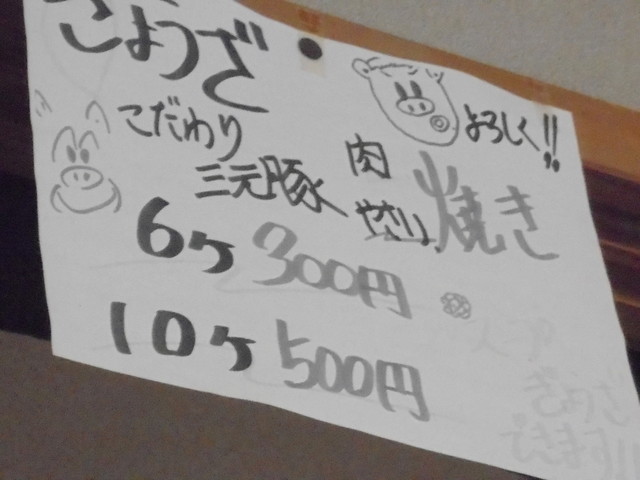 ぎょうざ
よろしく!!
こだわり
三元豚
肉
やさい
焼き
6ケ 300円
10ケ 500円
ぎょうざ
できます!!